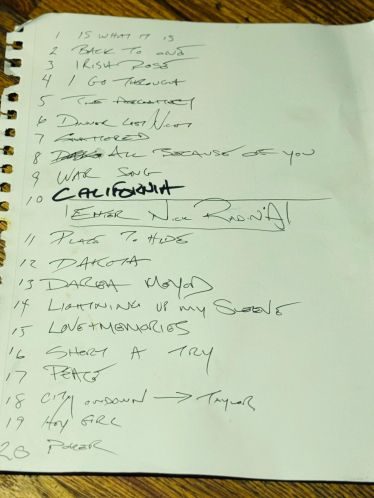 1 IS WHAT IT IS
2 BACK TO ONE
3 IRISH ROSE
4 I GO THROUGH
5 THE
6 DINNER LAST NIGHT
7 SHATTERED
8 ALL BECAUSE OF YOU
9 WAR SONG
10 CALIFORNIA
ENTER NICK
11 PLACE TO HIDE
12 DAKOTA
13
14 LIGHTNING UP MY SLEEVE
15 LOVE + MEMORIES
16 SHORT A TRY
17 PEACE
18 CITY ON DOWN → TAYLOR
19 HEY GIRL
20 POKER